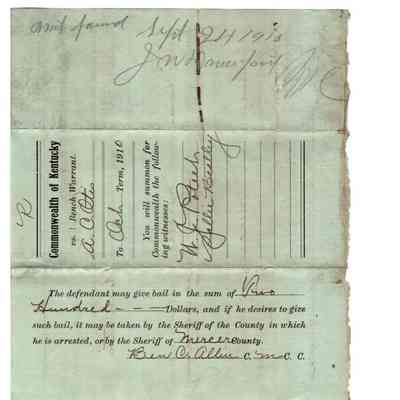 not found
Sept 24 1910
J W
Commonwealth of Kentucky
vs. } Bench Warrant.
A. C. Otis
To Oct. Term, 1910
You will summon for
Commonwealth the follow-
ing witnesses:
W. J.
Sallie
The defendant may give bail in the sum of Two
Hundred - - - Dollars, and if he desires to give
such bail, it may be taken by the Sheriff of the County in which
he is arrested, or by the Sheriff of Mercer County.
Ben C. Allin C. M C. C.